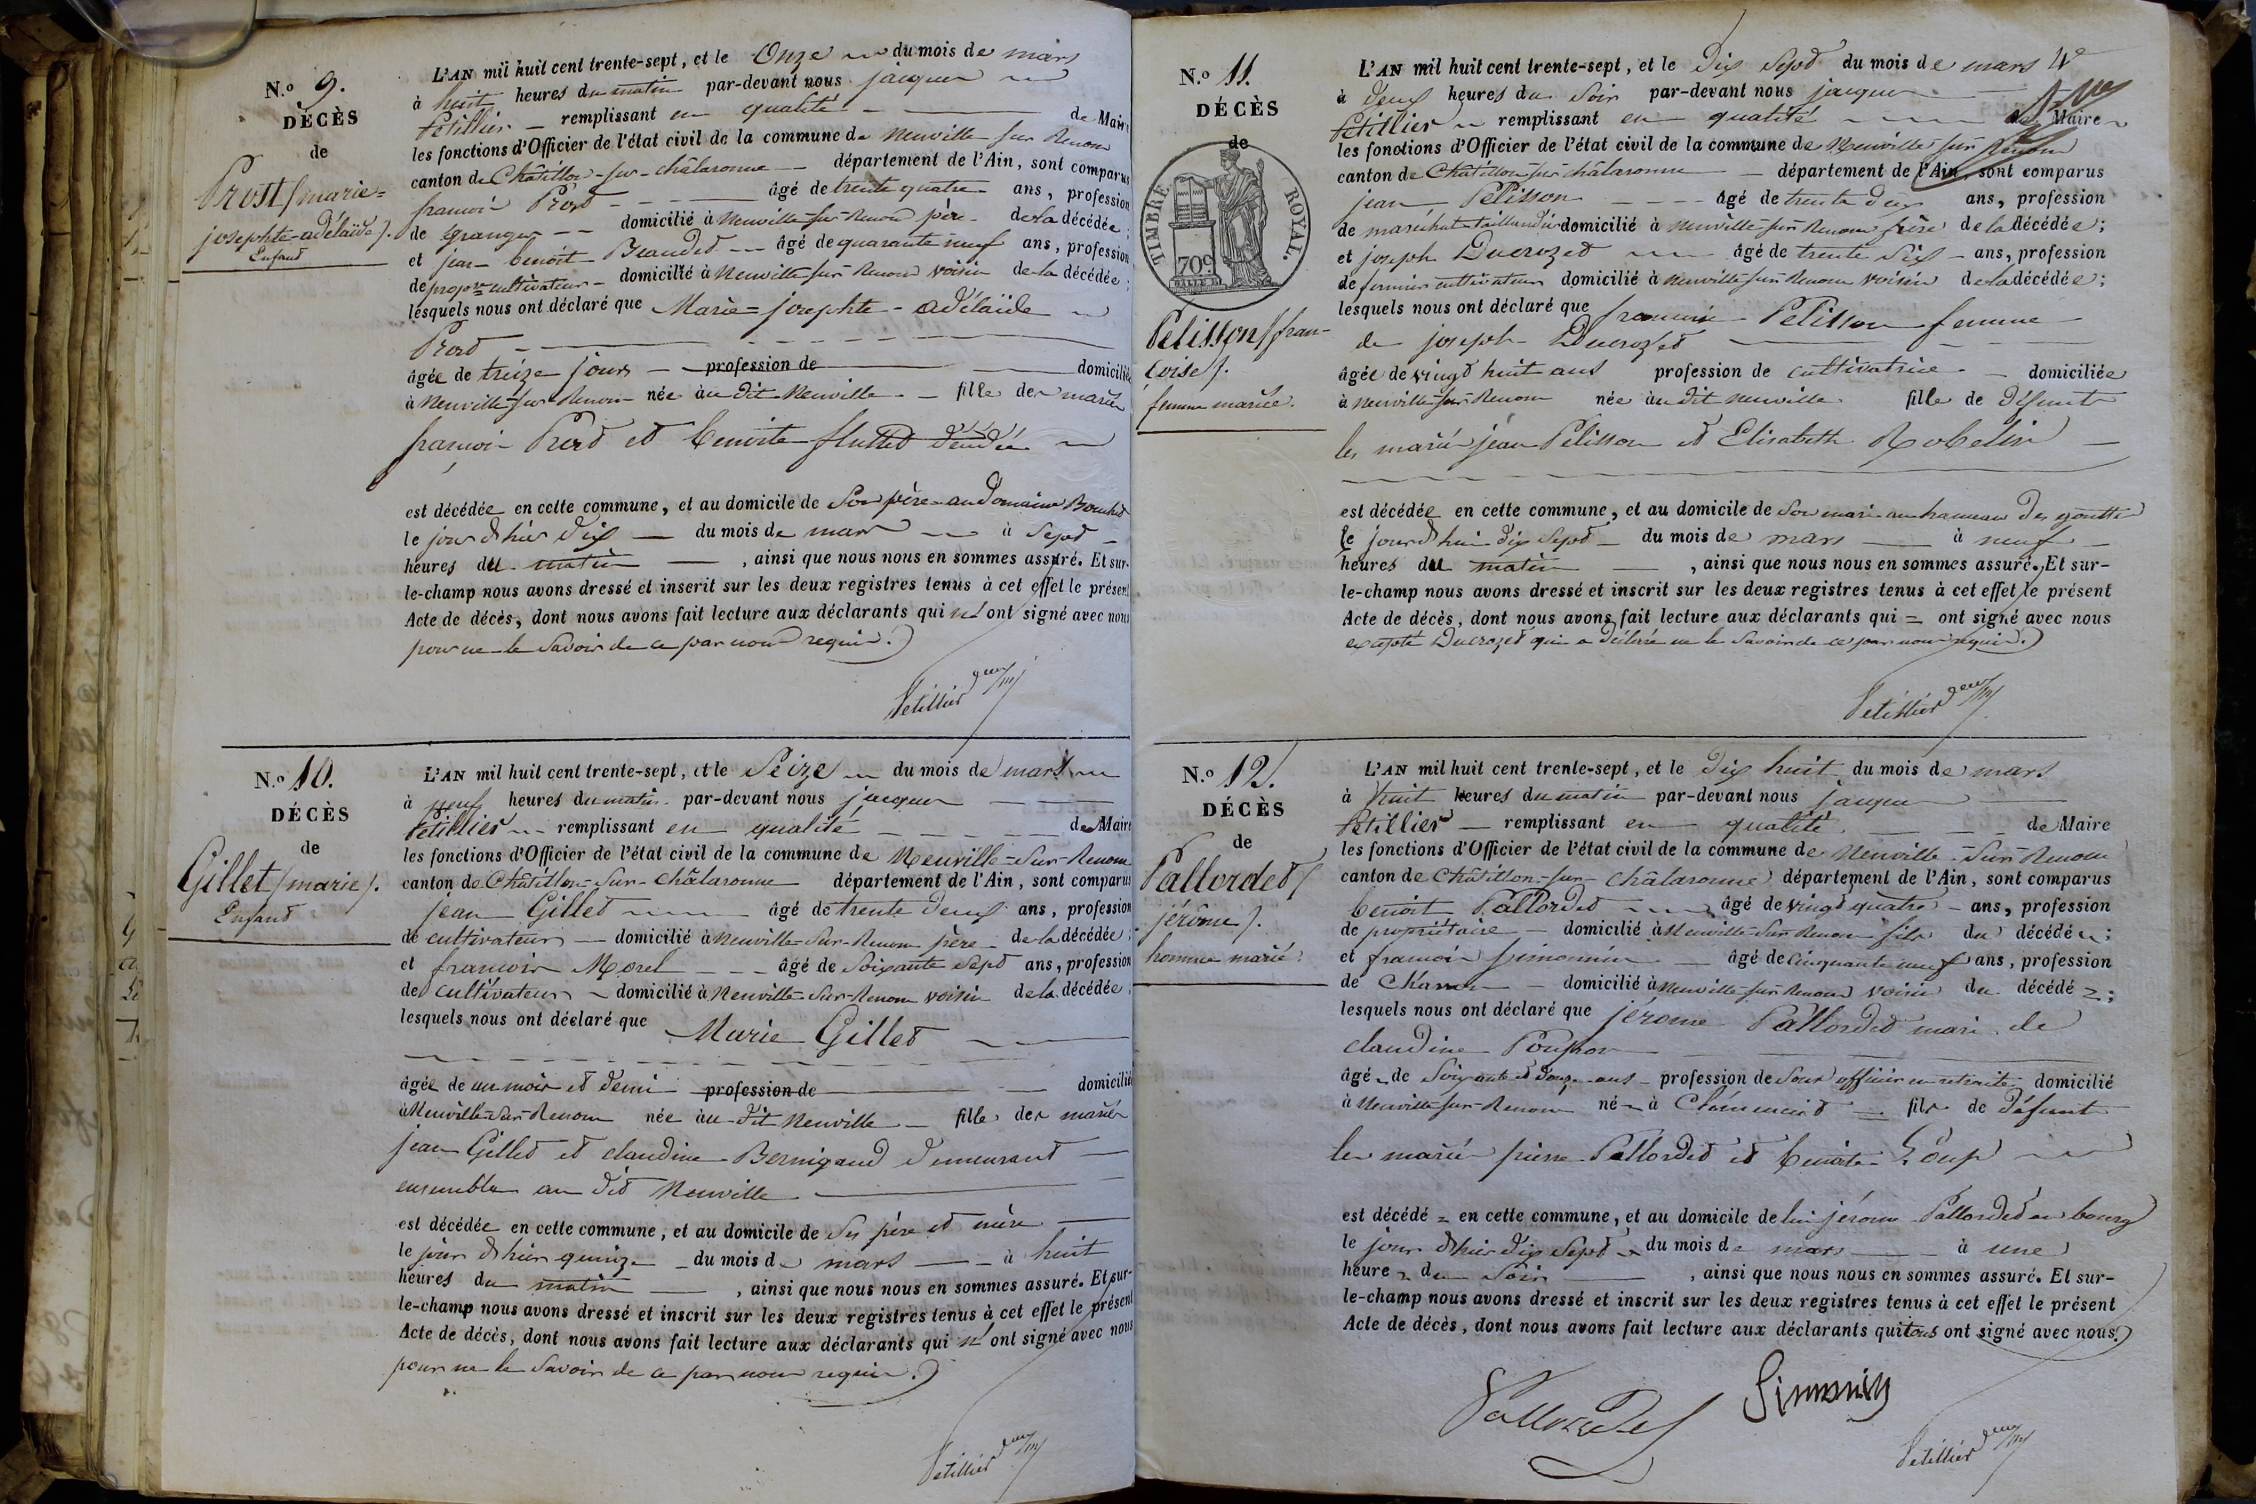 N.º 9.
DÉCÈS
de
Prost (marie=
josephte-adélaïde).
Enfant
L'AN mil huit cent trente-sept, et le Onze du mois de mars
à huit heures du matin par-devant nous jacques
Petillier remplissant en qualité de Maire
les fonctions d'Officier de l'état civil de la commune de Neuville sur Renom
canton de Châtillon-sur-châlaronne département de l'Ain, sont comparus
francois Prost âgé de trente quatre ans, profession
de granger domicilié à Neuville-sur-Renom père de la décédée;
et jean benoit Beaudet âgé de quarante neuf ans, profession
de propre cultivateur domicilié à Neuville sur Renom voisin de la décédée;
lesquels nous ont déclaré que Marie=josephte-adélaïde
Prost
âgée de treize jours profession de domiciliée
à Neuville-sur-Renom née au dit Neuville fille des mariés
francois Prost et benoite
est décédée en cette commune, et au domicile de son père au domaine Bouchet
le jour d'hier dix du mois de mars à sept
heures du matin, ainsi que nous nous en sommes assuré. Et sur-
le-champ nous avons dressé et inscrit sur les deux registres tenus à cet effet le présent
Acte de décès, dont nous avons fait lecture aux déclarants qui n' ont signé avec nous
pour ne le savoir de ce par nous requis.
Petillier
N.º 10.
DÉCÈS
de
Gillet (marie).
Enfant
L'AN mil huit cent trente-sept, et le Seize du mois de mars
à neuf heures du matin par-devant nous jacques
Petillier remplissant en qualité de Maire
les fonctions d'Officier de l'état civil de la commune de Neuville-sur-Renom
canton de Châtillon-sur-châlaronne département de l'Ain, sont comparus
jean Gillet âgé de trente deux ans, profession
de cultivateur domicilié à Neuville-sur-Renom père de la décédée;
et francois Morel âgé de soixante sept ans, profession
de cultivateur domicilié à Neuville-sur-Renom voisin de la décédée;
lesquels nous ont déclaré que Marie Gillet
âgée de un mois et demi profession de domiciliée
à Neuville-sur-Renom née au dit Neuville fille des mariés
jean Gillet et claudine Bernigaud demeurant
ensemble au dit Neuville
est décédée en cette commune, et au domicile de ses père et mère
le jour d'hier quinze du mois de mars à huit
heures du matin, ainsi que nous nous en sommes assuré. Et sur-
le-champ nous avons dressé et inscrit sur les deux registres tenus à cet effet le présent
Acte de décès, dont nous avons fait lecture aux déclarants qui n' ont signé avec nous
pour ne le savoir de ce par nous requis.
Petillier
N.º 11.
DÉCÈS
de
TIMBRE ROYAL.
70c
Pelisson (fran-
coise).
femme mariée.
L'AN mil huit cent trente-sept, et le Dix sept du mois de mars
à deux heures du soir par-devant nous jacques
Petillier remplissant en qualité de Maire
les fonctions d'Officier de l'état civil de la commune de Neuville sur Renom
canton de Châtillon sur châlaronne département de l'Ain, sont comparus
jean Pelisson âgé de trente deux ans, profession
de maréchal-taillandier domicilié à Neuville-sur-Renom frère de la décédée;
et joseph Ducrozet âgé de trente six ans, profession
de fermier cultivateur domicilié à Neuville-sur-Renom voisin de la décédée;
lesquels nous ont déclaré que francoise Pelisson femme
de joseph Ducrozet
âgée de vingt huit ans profession de cultivatrice domiciliée
à Neuville-sur-Renom née au dit Neuville fille de défunts
les mariés jean Pelisson et Elisabeth Robelin
est décédée en cette commune, et au domicile de son mari au hameau des gouttes
le jourd'hui dix sept du mois de mars à neuf
heures du matin, ainsi que nous nous en sommes assuré. Et sur-
le-champ nous avons dressé et inscrit sur les deux registres tenus à cet effet le présent
Acte de décès, dont nous avons fait lecture aux déclarants qui = ont signé avec nous
excepté Ducrozet qui a déclaré ne le savoir de ce par nous requis.
Petillier
N.º 12.
DÉCÈS
de
Pallordet (
jérôme).
homme marié.
L'AN mil huit cent trente-sept, et le Dix huit du mois de mars
à huit heures du matin par-devant nous jacques
Petillier remplissant en qualité de Maire
les fonctions d'Officier de l'état civil de la commune de Neuville-sur-Renom
canton de Châtillon-sur-châlaronne département de l'Ain, sont comparus
benoit Pallordet âgé de vingt quatre ans, profession
de propriétaire domicilié à Neuville-sur-Renom fils du décédé;
et francois Simonnin âgé de cinquante neuf ans, profession
de domicilié à Neuville-sur-Renom voisin du décédé;
lesquels nous ont déclaré que jérome Pallordet mari de
claudine
âgé de soixante et douze ans profession de sous officier en retraite domicilié
à Neuville-sur-Renom né à fils de défunts
les mariés pierre Pallordet et benoite Loup
est décédé en cette commune, et au domicile de lui jérome Pallordet au bourg
le jour d'hier dix sept du mois de mars à une
heure du soir, ainsi que nous nous en sommes assuré. Et sur-
le-champ nous avons dressé et inscrit sur les deux registres tenus à cet effet le présent
Acte de décès, dont nous avons fait lecture aux déclarants qui tous ont signé avec nous.
Pallordet
Simonnin
Petillier